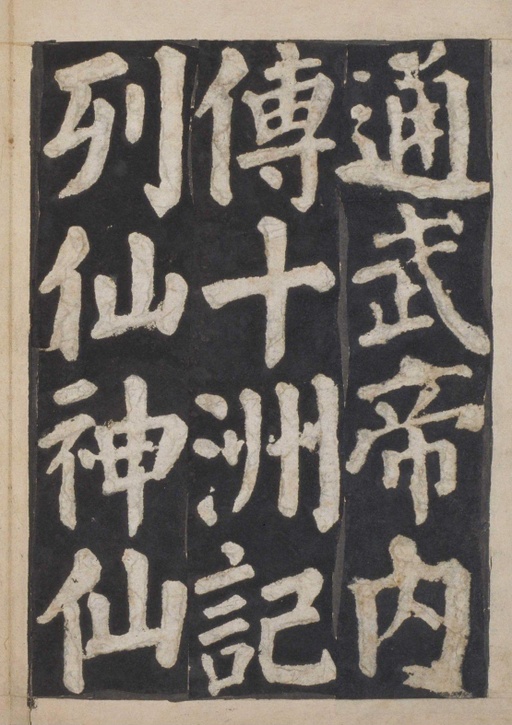 通武帝内
傳十洲記
列仙神仙